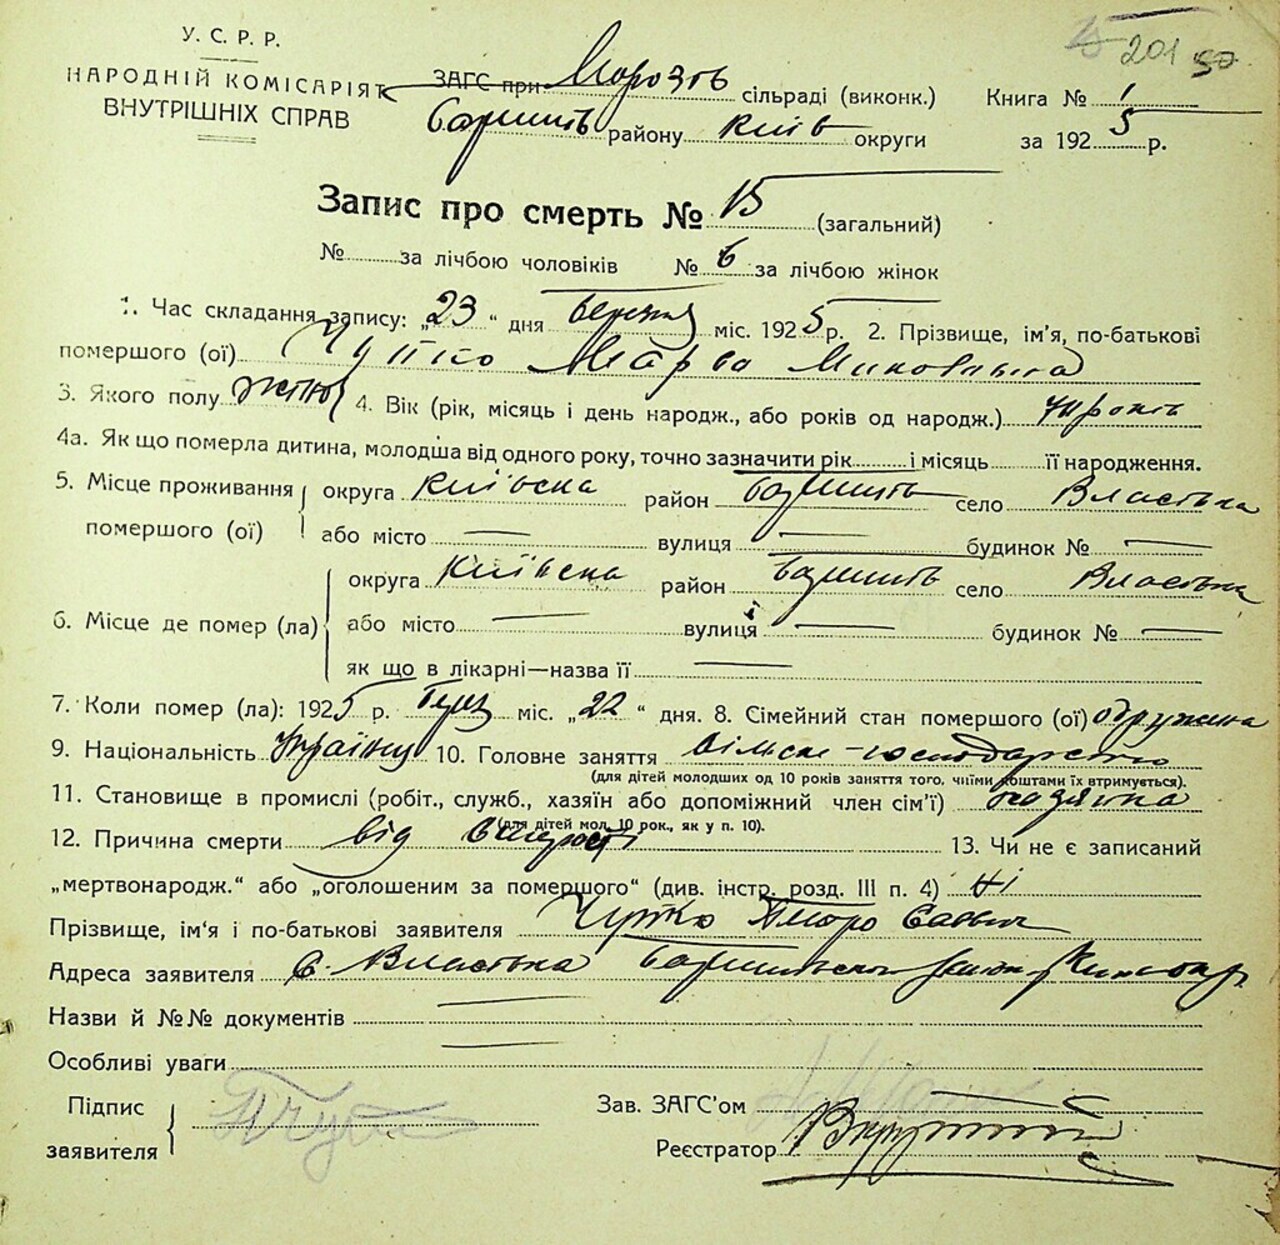 201
У. С. Р. Р.
НАРОДНІЙ КОМІСАРІЯТ
ВНУТРІШНІХ СПРАВ
ЗАГС при Морозів сільраді (виконк.)
Баришів району Київ округи
Книга № 1
за 1925 р.
Запис про смерть № 15 (загальний)
№ за лічбою чоловіків № 6 за лічбою жінок
1. Час складання запису: „23“ дня березня міс. 1925 р. 2. Прізвище, ім'я, по-батькові
помершого (ої)
3. Якого полу 4. Вік (рік, місяць і день народж., або років од народж.) років
4а. Як що померла дитина, молодша від одного року, точно зазначити рік і місяць її народження.
5. Місце проживання помершого (ої) округа Київська район Баришів село Власівка
або місто — вулиця — будинок № —
6. Місце де помер (ла) округа Київська район Баришів село Власівка
або місто — вулиця — будинок № —
як що в лікарні—назва її —
7. Коли помер (ла): 1925 р. берез міс. „22“ дня. 8. Сімейний стан помершого (ої) одружина
9. Національність Українка 10. Головне заняття сільске-господарство
(для дітей молодших од 10 років заняття того, чиїми коштами їх втримується).
11. Становище в промислі (робіт., служб., хазяїн або допоміжний член сім'ї) хозяїка
(для дітей мол. 10 рок., як у п. 10).
12. Причина смерти від старости 13. Чи не є записаний
„мертвонародж.“ або „оголошеним за помершого“ (див. інстр. розд. III п. 4) Ні
Прізвище, ім'я і по-батькові заявителя
Адреса заявителя с. Власівка
Назви й №№ документів —
Особливі уваги —
Підпис заявителя
Зав. ЗАГС'ом
Реєстратор